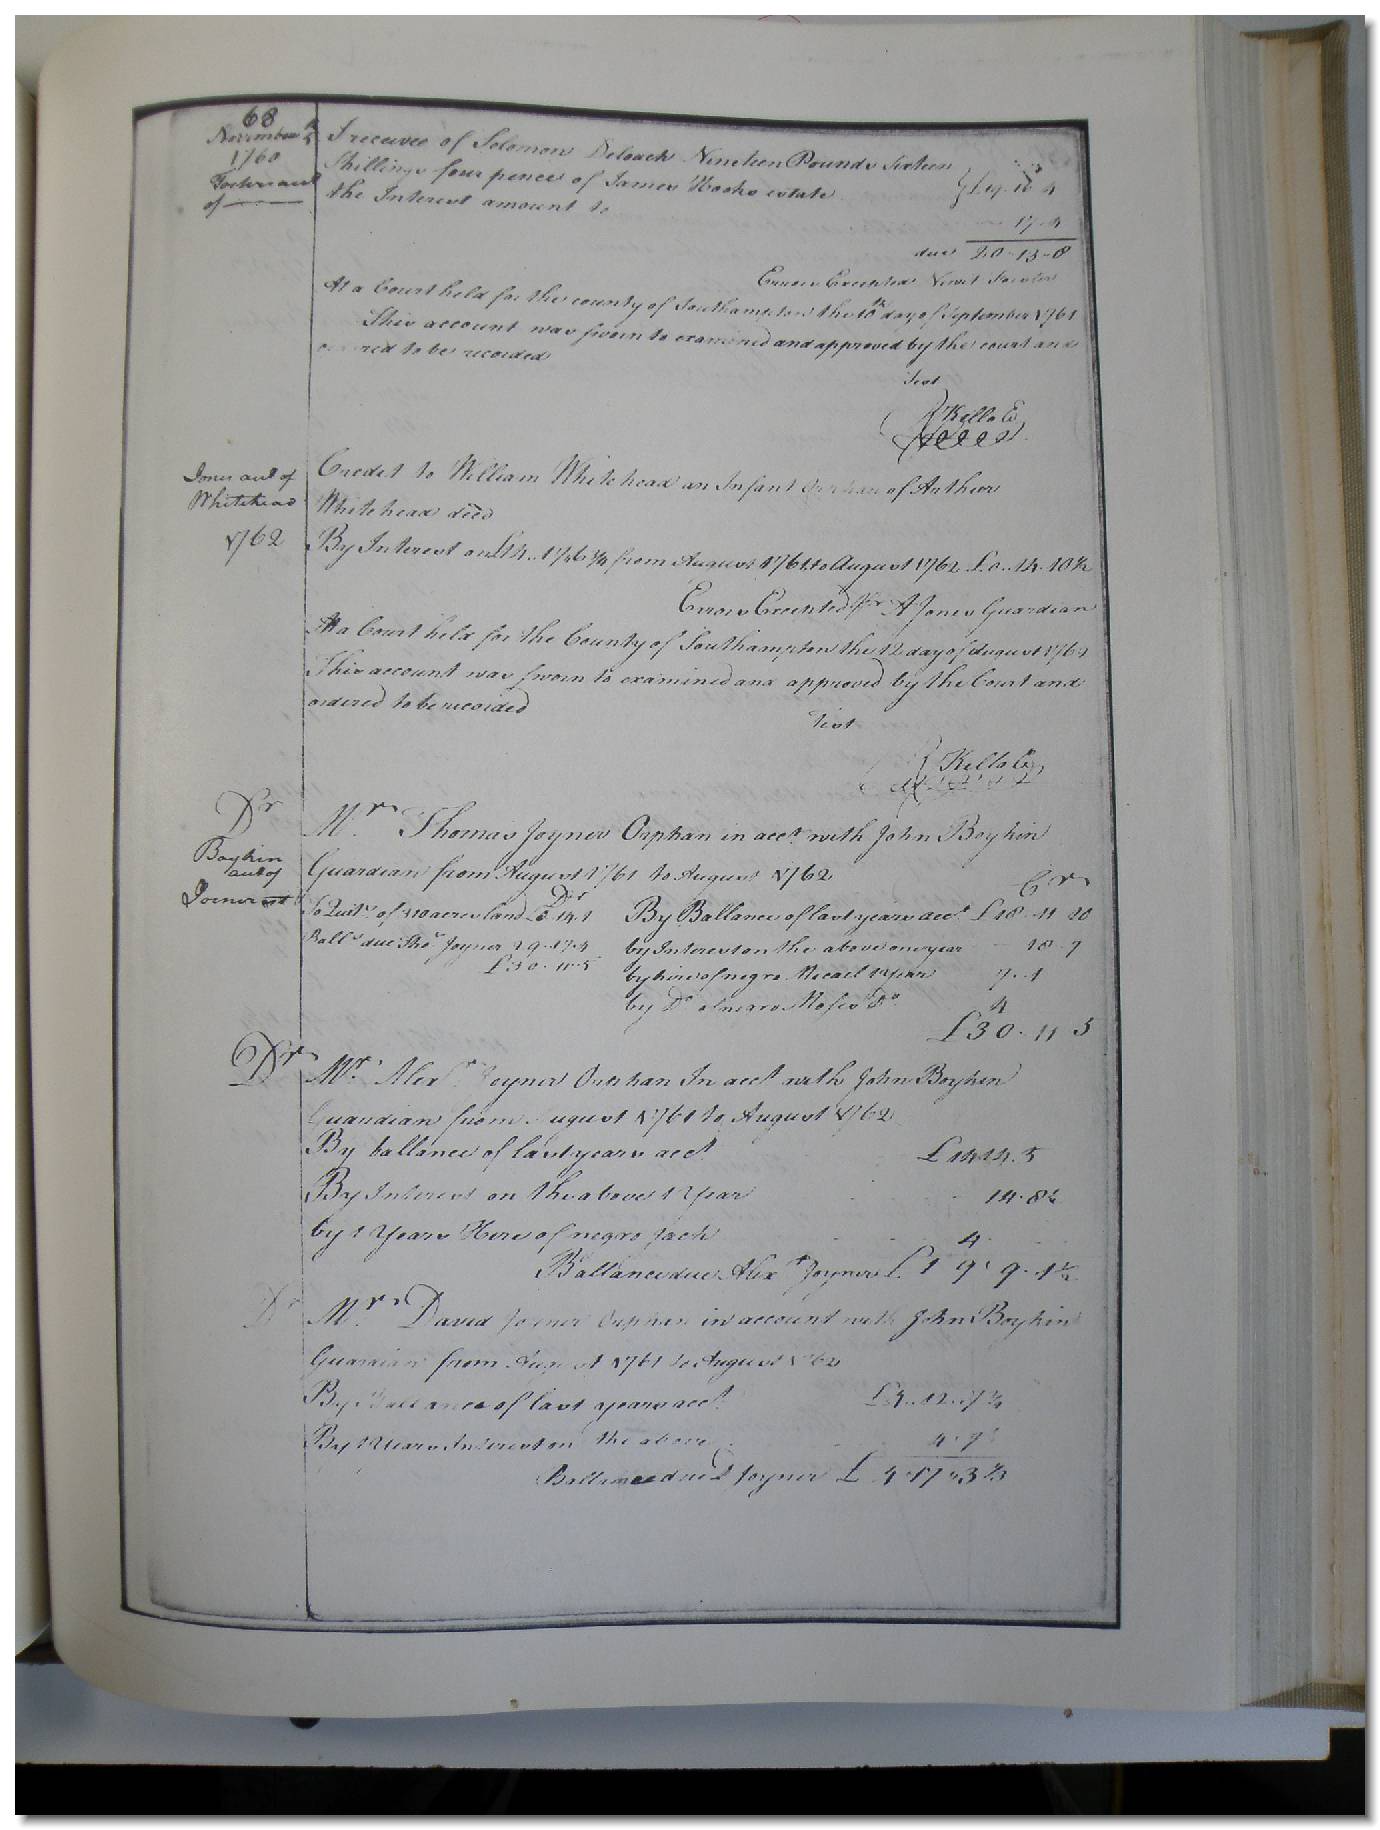 68
November 5
1760
of
I received of Solomon Deloach Nineteen Pounds Sixteen
Shillings four pence of James estate £19.16.4
the Interest amount to 17.4
due 20-13-8
Errors Excepted
At a Court held for the county of Southampton the 10th day of September 1761
This account was sworn to examined and approved by the court and
ordered to be recorded
Test
Kello
Jones acct of
Whitehead
1762
Credit to William Whitehead an Infant Orphan of Arthur
Whitehead decd
By Interest on from August 1761 to August 1762 £0..14.10½
Errors Excepted pr A Jones Guardian
At a Court held for the County of Southampton the 12 day of August 1762
This account was sworn to examined and approved by the Court and
ordered to be recorded
Test
Kello
Dr
Boykin
acct of
Joiner
Mr. Thomas Joyner Orphan in acct. with John Boykin
Guardian from August 1761 to August 1762
Dr Cr
To Quitr. of 310 acres land 14.1 By Ballance of last years acct £18-11 10
Balle due Thos Joyner 29-17-4 by Interest on the above one year 18-7
£30-11-5 by hire of negro 1 year 7-1
by Do of negro Moses Do 4
£30-11 5
Dr
Mr. Alexr. Joyner Orphan In acct with John Boykin
Guardian from August 1761 to August 1762
By ballance of last years acct £14 14.5
By Interest on the above 1 Year 14-8½
by 1 Years Hire of negro Jack 4
Ballance due Alexr Joyner £19-9-1½
Dr
Mr. David Joiner Orphan in account with John Boykin
Guardian from August 1761 to August 1762
By Ballance of last years acct. £4..12..7¼
By 1 Years Interest on the above 4-7
Ballance due D Joyner £4-17-3